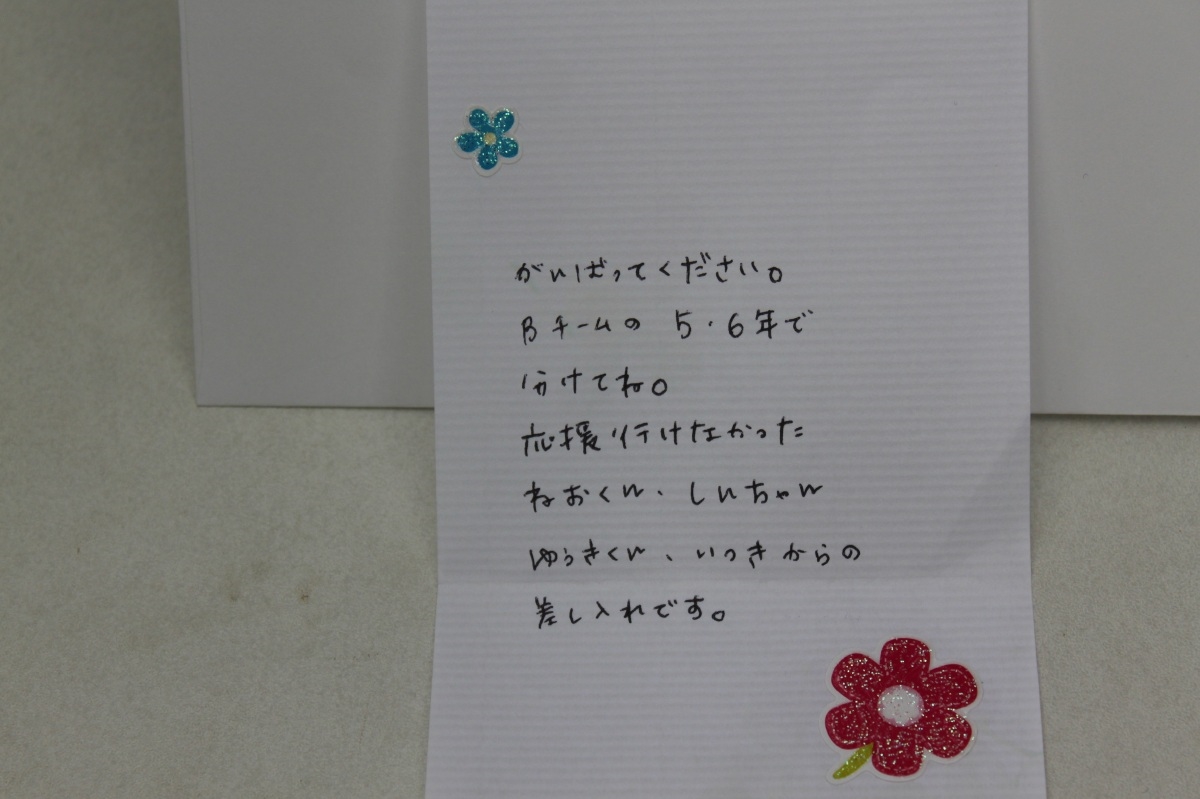 がんばってください。
Bチームの 5・6年で
分けてね。
応援行けなかった
ねおくん、しんちゃん
ゆうきくん、いつきからの
差し入れです。